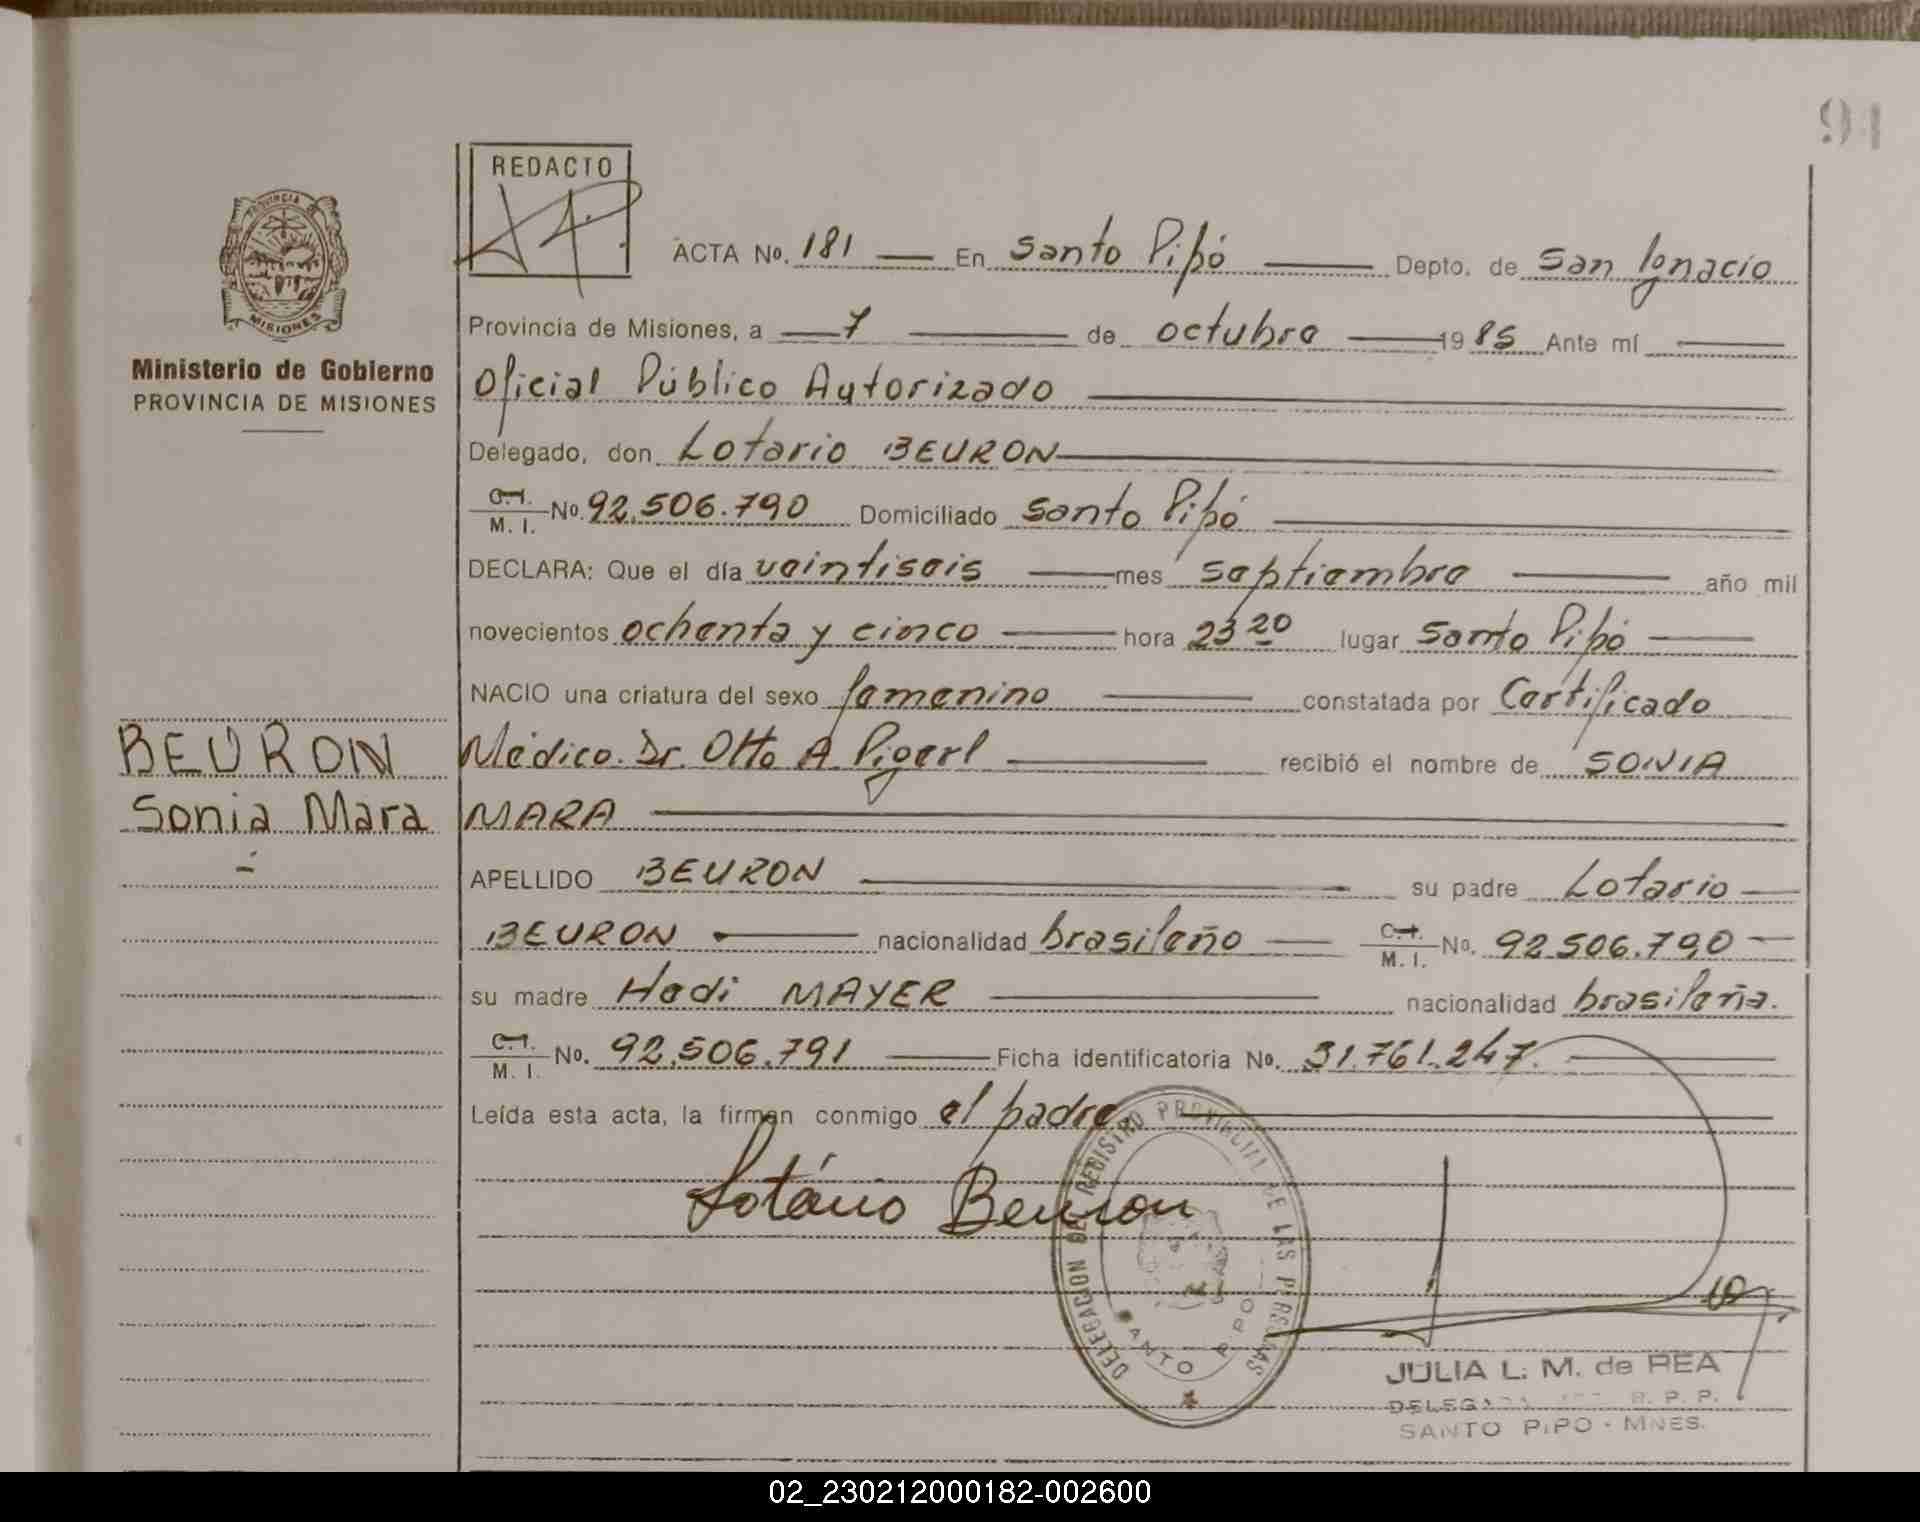 91
REDACTO
PROVINCIA DE
MISIONES
Ministerio de Gobierno
PROVINCIA DE MISIONES
ACTA No. 181 En Santo Pipó Depto. de San Ignacio
Provincia de Misiones, a 7 de octubre 1985 Ante mí
Oficial Público Autorizado
Delegado, don Lotario BEURON
C.I. M. I. No. 92.506.790 Domiciliado Santo Pipó
DECLARA: Que el día veintiseis mes septiembre año mil
novecientos ochenta y cinco hora 23 20 lugar Santo Pipó
NACIO una criatura del sexo femenino constatada por Certificado
BEURON
Médico. Dr. Otto A Pigerl recibió el nombre de SONIA
Sonia Mara
MARA
APELLIDO BEURON su padre Lotario
BEURON nacionalidad brasileño C.I. M. I. No. 92.506.790
su madre Hedi MAYER nacionalidad brasileña.
C.I. M. I. No. 92.506.791 Ficha identificatoria No. 31.761.247.
Leída esta acta, la firman conmigo el padre
Lotário Beuron
DELEGACION DEL REGISTRO PROVINCIAL DE LAS PERSONAS
SANTO PIPO
JULIA L. M. de REA
R. P. P.
SANTO PIPO - MNES.
02_230212000182-002600